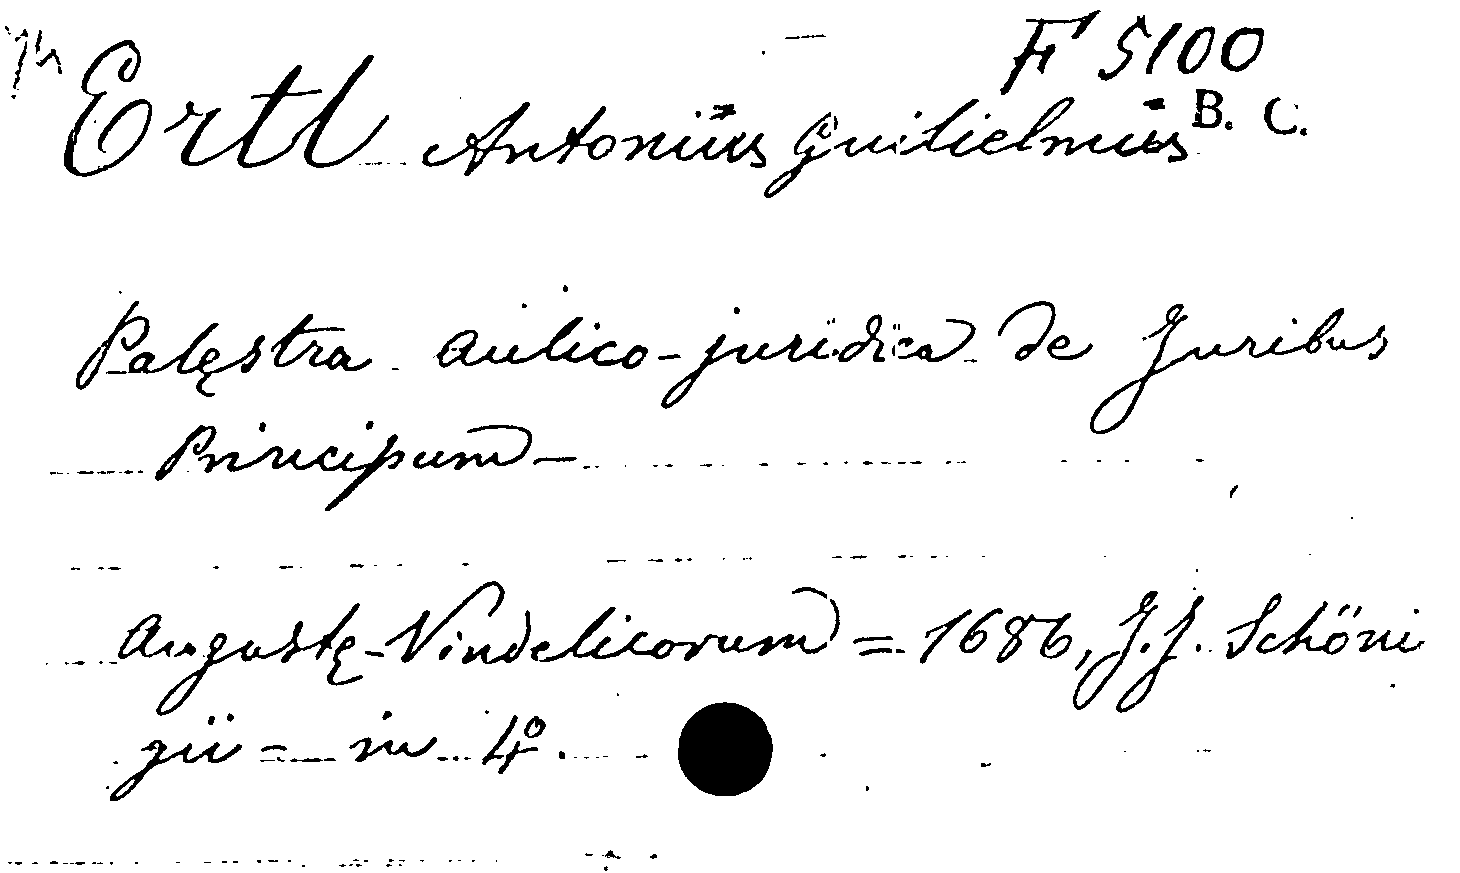 F 5100
Ertl Antonius Guilielmus B. C.
Palęstra aulico-juridica de Juribus
Principum—
Augustę-Vindelicorum = 1686, J. J. Schöni
gii = in 4º.